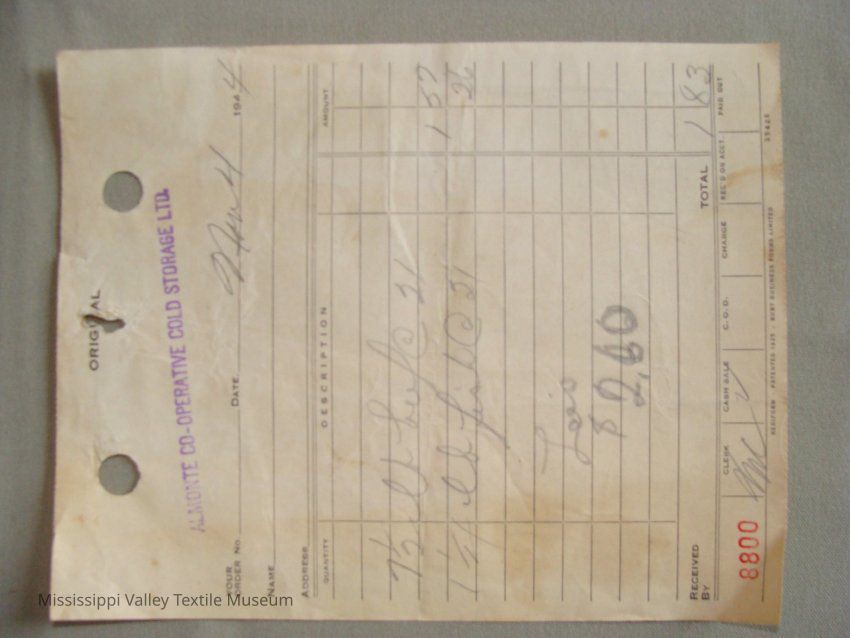 ORIGINAL
ALMONTE CO-OPERATIVE COLD STORAGE LTD.
YOUR ORDER No. DATE Nov 4 1944
NAME
ADDRESS
QUANTITY DESCRIPTION AMOUNT
7 1/2 lb beef @ 21 1 57
1 1/4 lb @ 21 26
Lois
$ 2.60
RECEIVED BY TOTAL 1 83
CLERK CASH SALE C.O.D. CHARGE REC'D ON ACCT. PAID OUT
8800
REDIFORM PATENTED 1925 - BURT BUSINESS FORMS LIMITED
Mississippi Valley Textile Museum